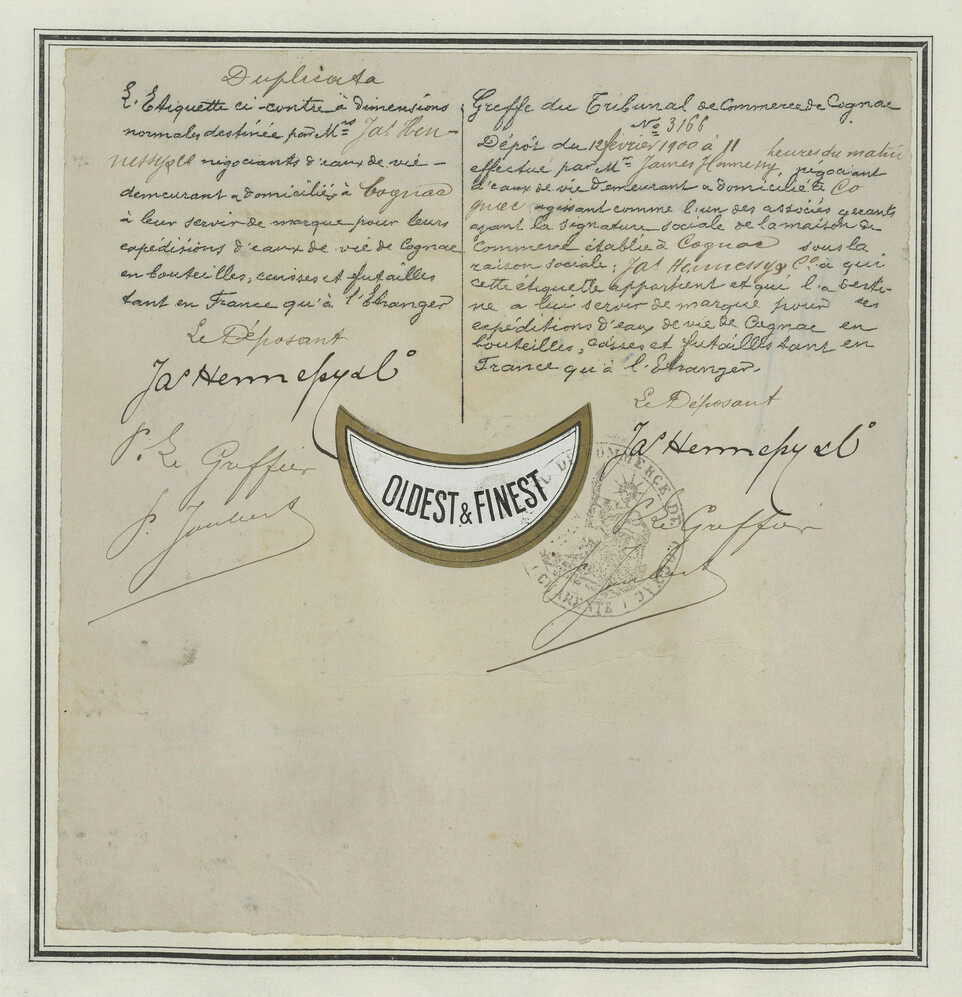 Duplicata
L'Etiquette ci-contre à dimensions
normales destinée par Mrs Jas Hen-
nessy & Co négociants d'eaux de vie -
demeurant & domiciliés à Cognac
à leur servir de marque pour leurs
expéditions d'eaux de vie de Cognac
en bouteilles, caisses et futailles
tant en France qu'à l'Etranger
Le Déposant
Jas Hennessy & Co
P. Le Greffier
P. Joubert
Greffe du Tribunal de Commerce de Cognac
No 3166
Dépôt du 12 février 1900 à 11 heures du matin
effectué par Mr James Hennessy, négociant
d'eaux de vie demeurant & domicilié à Co
gnac agissant comme l'un des associés gérants
ayant la signature sociale de la maison de
Commerce établie à Cognac sous la
raison sociale: Jas Hennessy & Co à qui
cette étiquette appartient et qui l'a desti-
né a lui servir de marque pour ses
expéditions d'eaux de vie de Cognac en
bouteilles, caisses et futailles tant en
France qu'à l'Etranger.
Le Déposant
Jas Hennessy & Co
P. Le Greffier
P. Joubert
OLDEST & FINEST
DE COMMERCE DE
CHARENTE